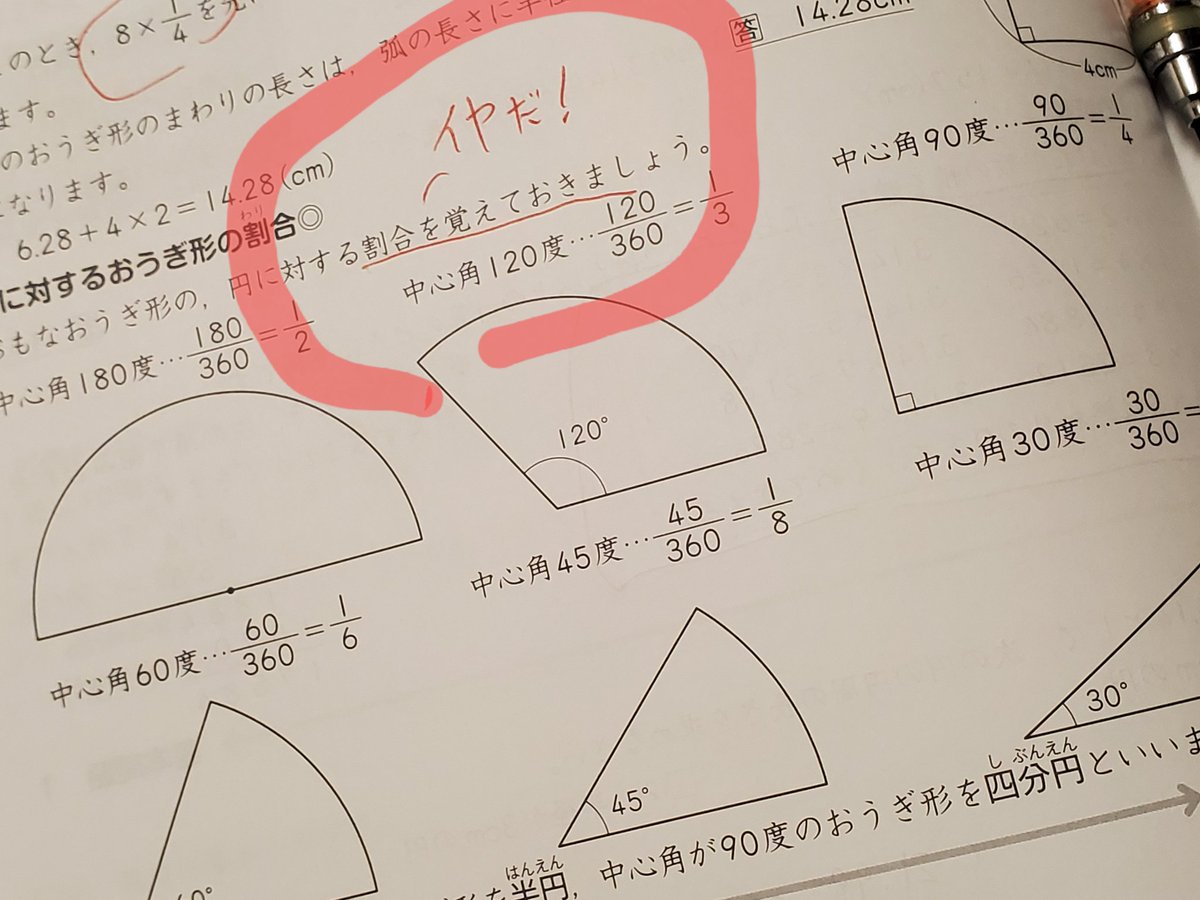 のとき，8×1/4を元
ます。
のおうぎ形のまわりの長さは，弧の長さに半径
になります。
6.28＋4×2＝14.28(cm)
答 14.28cm
4cm
イヤだ！
に対するおうぎ形の割合◎
わり
おもなおうぎ形の，円に対する割合を覚えておきましょう。
中心角180度…180/360＝1/2
中心角120度…120/360＝1/3
中心角90度…90/360＝1/4
120°
中心角60度…60/360＝1/6
中心角45度…45/360＝1/8
中心角30度…30/360＝
45°
30°
はんえん
しぶんえん
半円，中心角が90度のおうぎ形を四分円といいま